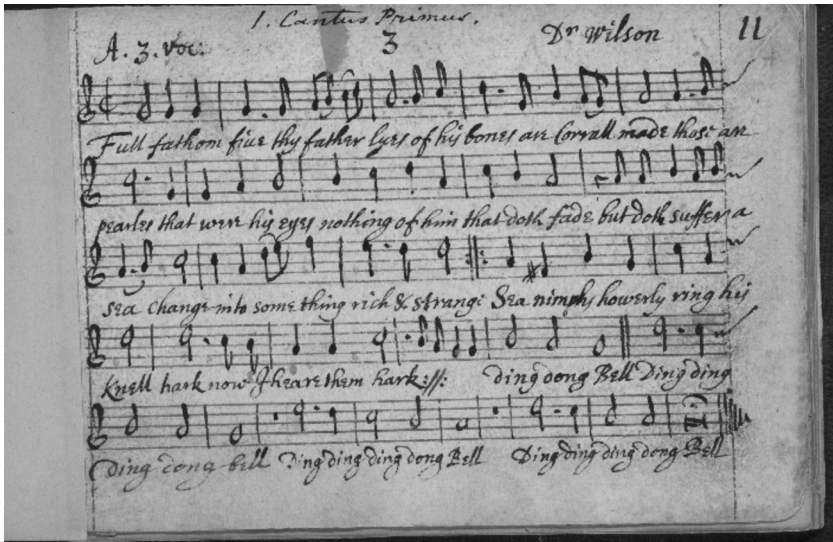 1. Cantus Primus.
A. 3. voc:
3
Dr Wilson
11
Full fathom five thy father lyes of his bones are Corrall made those are
pearles that were his eyes nothing of him that doth fade but doth suffer a
sea change into something rich & strange Sea nimphs howerly ring his
knell hark now I heare them hark :||: ding dong Bell Ding ding
ding dong bell Ding ding ding dong Bell Ding ding ding dong Bell